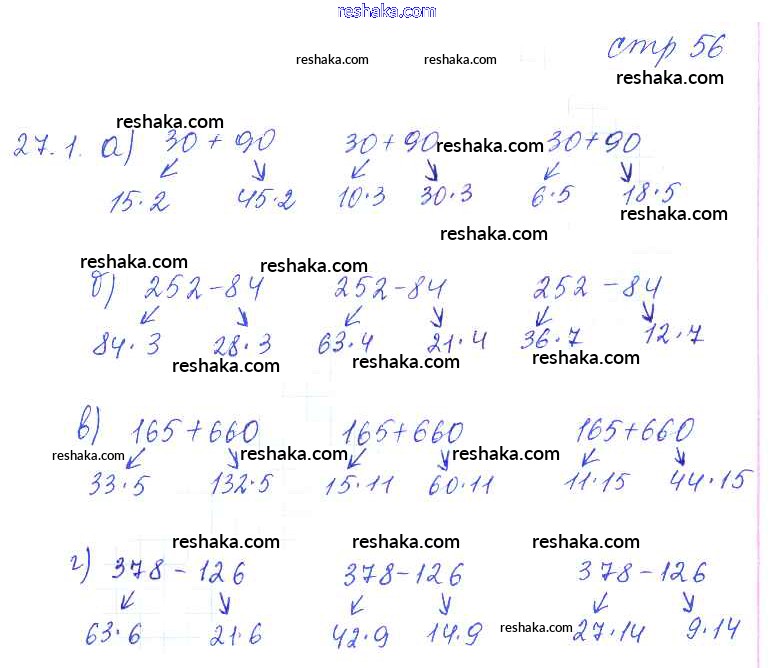 reshaka.com
стр 56
reshaka.com reshaka.com
reshaka.com
reshaka.com
27.1. а) 30 + 90 30 + 90 reshaka.com 30 + 90
15·2 45·2 10·3 30·3 6·5 18·5
reshaka.com
reshaka.com
reshaka.com reshaka.com
б) 252 - 84 252 - 84 252 - 84
84·3 28·3 63·4 21·4 36·7 12·7
reshaka.com reshaka.com reshaka.com
в) 165 + 660 165 + 660 165 + 660
reshaka.com reshaka.com reshaka.com
33·5 132·5 15·11 60·11 11·15 44·15
reshaka.com reshaka.com reshaka.com
г) 378 - 126 378 - 126 378 - 126
63·6 21·6 42·9 14·9 reshaka.com 27·14 9·14